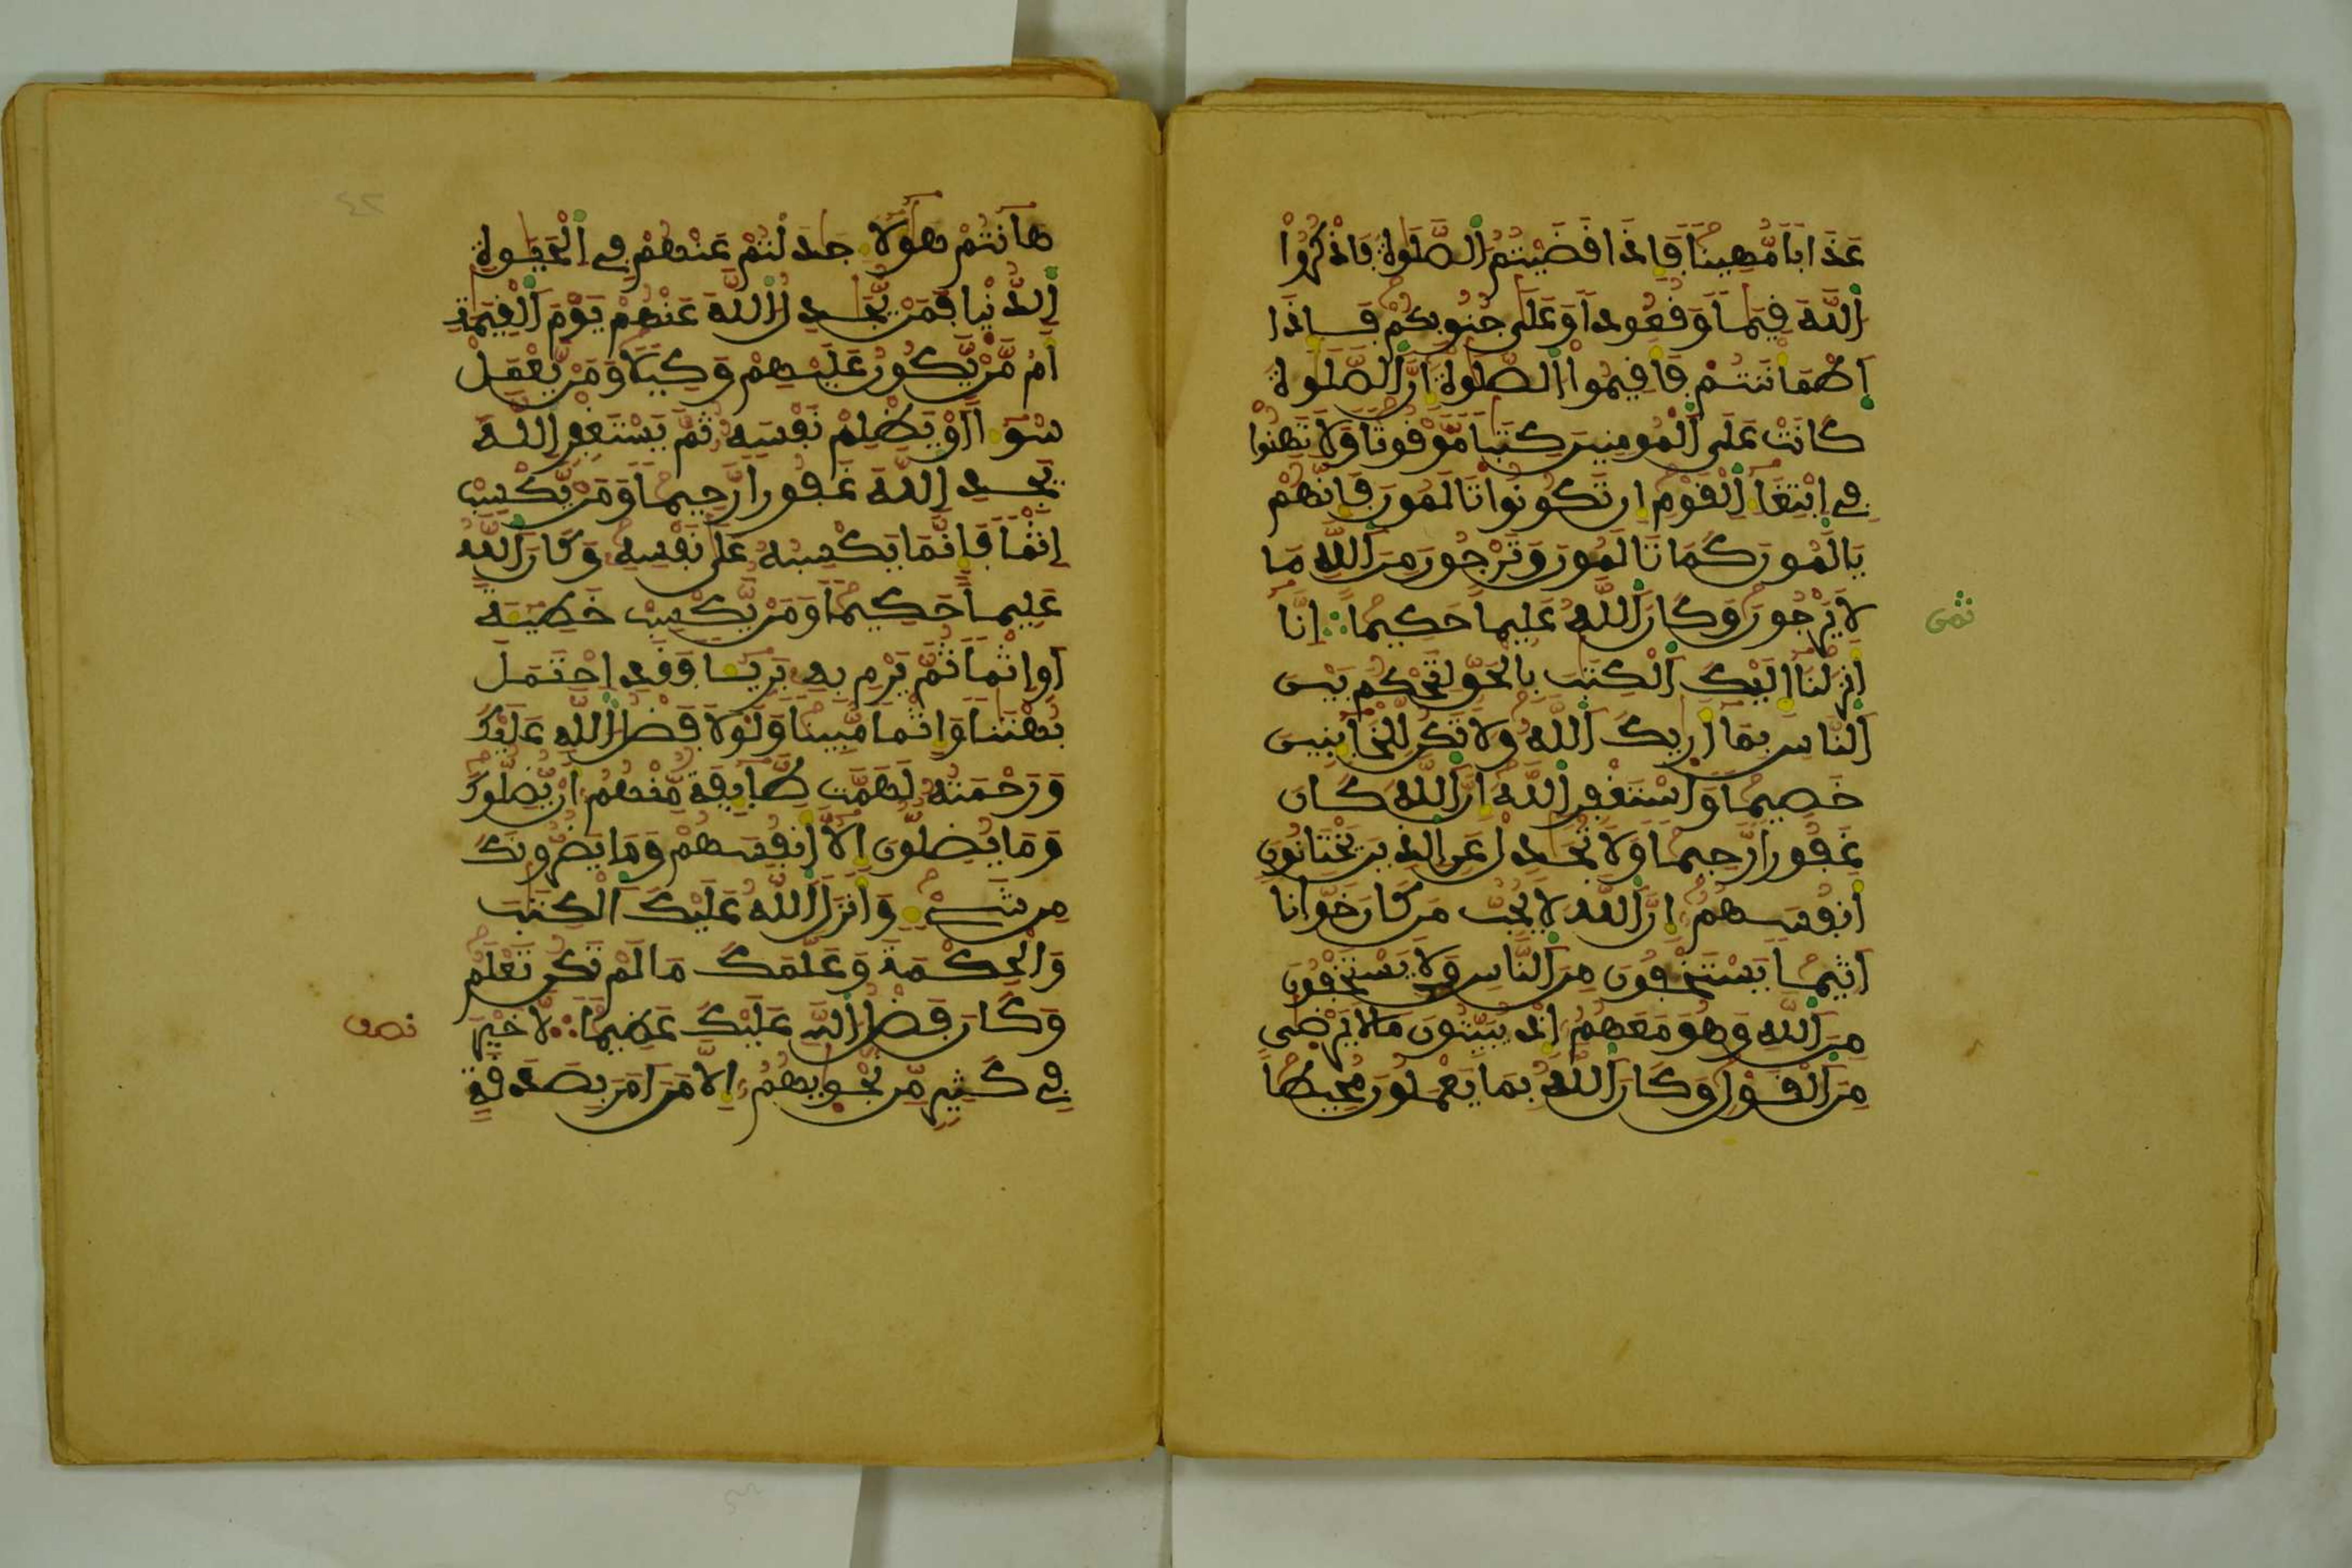 عَذَابًا مُّهِينًا فَإِذَا قَضَيْتُمُ الصَّلَوٰةَ فَاذْكُرُوا
اللَّهَ قِيَٰمًا وَقُعُودًا وَعَلَىٰ جُنُوبِكُمْ فَإِذَا
اطْمَأْنَنتُمْ فَأَقِيمُوا الصَّلَوٰةَ إِنَّ الصَّلَوٰةَ
كَانَتْ عَلَى الْمُومِنِينَ كِتَٰبًا مَّوْقُوتًا وَلَا تَهِنُوا
فِي ابْتِغَاءِ الْقَوْمِ إِن تَكُونُوا تَالَمُونَ فَإِنَّهُمْ
يَالَمُونَ كَمَا تَالَمُونَ وَتَرْجُونَ مِنَ اللَّهِ مَا
لَا يَرْجُونَ وَكَانَ اللَّهُ عَلِيمًا حَكِيمًا ∴ إِنَّا
ثمن
أَنزَلْنَا إِلَيْكَ الْكِتَٰبَ بِالْحَقِّ لِتَحْكُمَ بَيْنَ
النَّاسِ بِمَا أَرَيٰكَ اللَّهُ وَلَا تَكُن لِّلْخَائِنِينَ
خَصِيمًا وَاسْتَغْفِرِ اللَّهَ إِنَّ اللَّهَ كَانَ
غَفُورًا رَّحِيمًا وَلَا تُجَٰدِلْ عَنِ الَّذِينَ يَخْتَانُونَ
أَنفُسَهُمُ إِنَّ اللَّهَ لَا يُحِبُّ مَن كَانَ خَوَّانًا
أَثِيمًا يَسْتَخْفُونَ مِنَ النَّاسِ وَلَا يَسْتَخْفُونَ
مِنَ اللَّهِ وَهُوَ مَعَهُمُ إِذْ يُبَيِّتُونَ مَا لَا يَرْضَىٰ
مِنَ الْقَوْلِ وَكَانَ اللَّهُ بِمَا يَعْمَلُونَ مُحِيطًا
هَا أَنتُمْ هَٰؤُلَاءِ جَٰدَلْتُمْ عَنْهُمْ فِي الْحَيَوٰةِ
الدُّنْيَا فَمَنْ يُّجَٰدِلُ اللَّهَ عَنْهُمْ يَوْمَ الْقِيَٰمَةِ
أَم مَّنْ يَّكُونُ عَلَيْهِمْ وَكِيلًا وَمَنْ يَّعْمَلْ
سُوءًا أَوْ يَظْلِمْ نَفْسَهُ ثُمَّ يَسْتَغْفِرِ اللَّهَ
يَجِدِ اللَّهَ غَفُورًا رَّحِيمًا وَمَنْ يَّكْسِبْ
إِثْمًا فَإِنَّمَا يَكْسِبُهُ عَلَىٰ نَفْسِهِ وَكَانَ اللَّهُ
عَلِيمًا حَكِيمًا وَمَنْ يَّكْسِبْ خَطِيئَةً
أَوِ اثْمًا ثُمَّ يَرْمِ بِهِ بَرِيئًا فَقَدِ احْتَمَلَ
بُهْتَٰنًا وَإِثْمًا مُّبِينًا وَلَوْلَا فَضْلُ اللَّهِ عَلَيْكَ
وَرَحْمَتُهُ لَهَمَّت طَّائِفَةٌ مِّنْهُمُ أَنْ يُّضِلُّوكَ
وَمَا يُضِلُّونَ إِلَّا أَنفُسَهُمْ وَمَا يَضُرُّونَكَ
مِن شَيْءٍ وَأَنزَلَ اللَّهُ عَلَيْكَ الْكِتَٰبَ
وَالْحِكْمَةَ وَعَلَّمَكَ مَا لَمْ تَكُن تَعْلَمُ
وَكَانَ فَضْلُ اللَّهِ عَلَيْكَ عَظِيمًا ∴ لَّا خَيْرَ
نصف
فِي كَثِيرٍ مِّن نَّجْوَيٰهُمُ إِلَّا مَنَ أَمَرَ بِصَدَقَةٍ